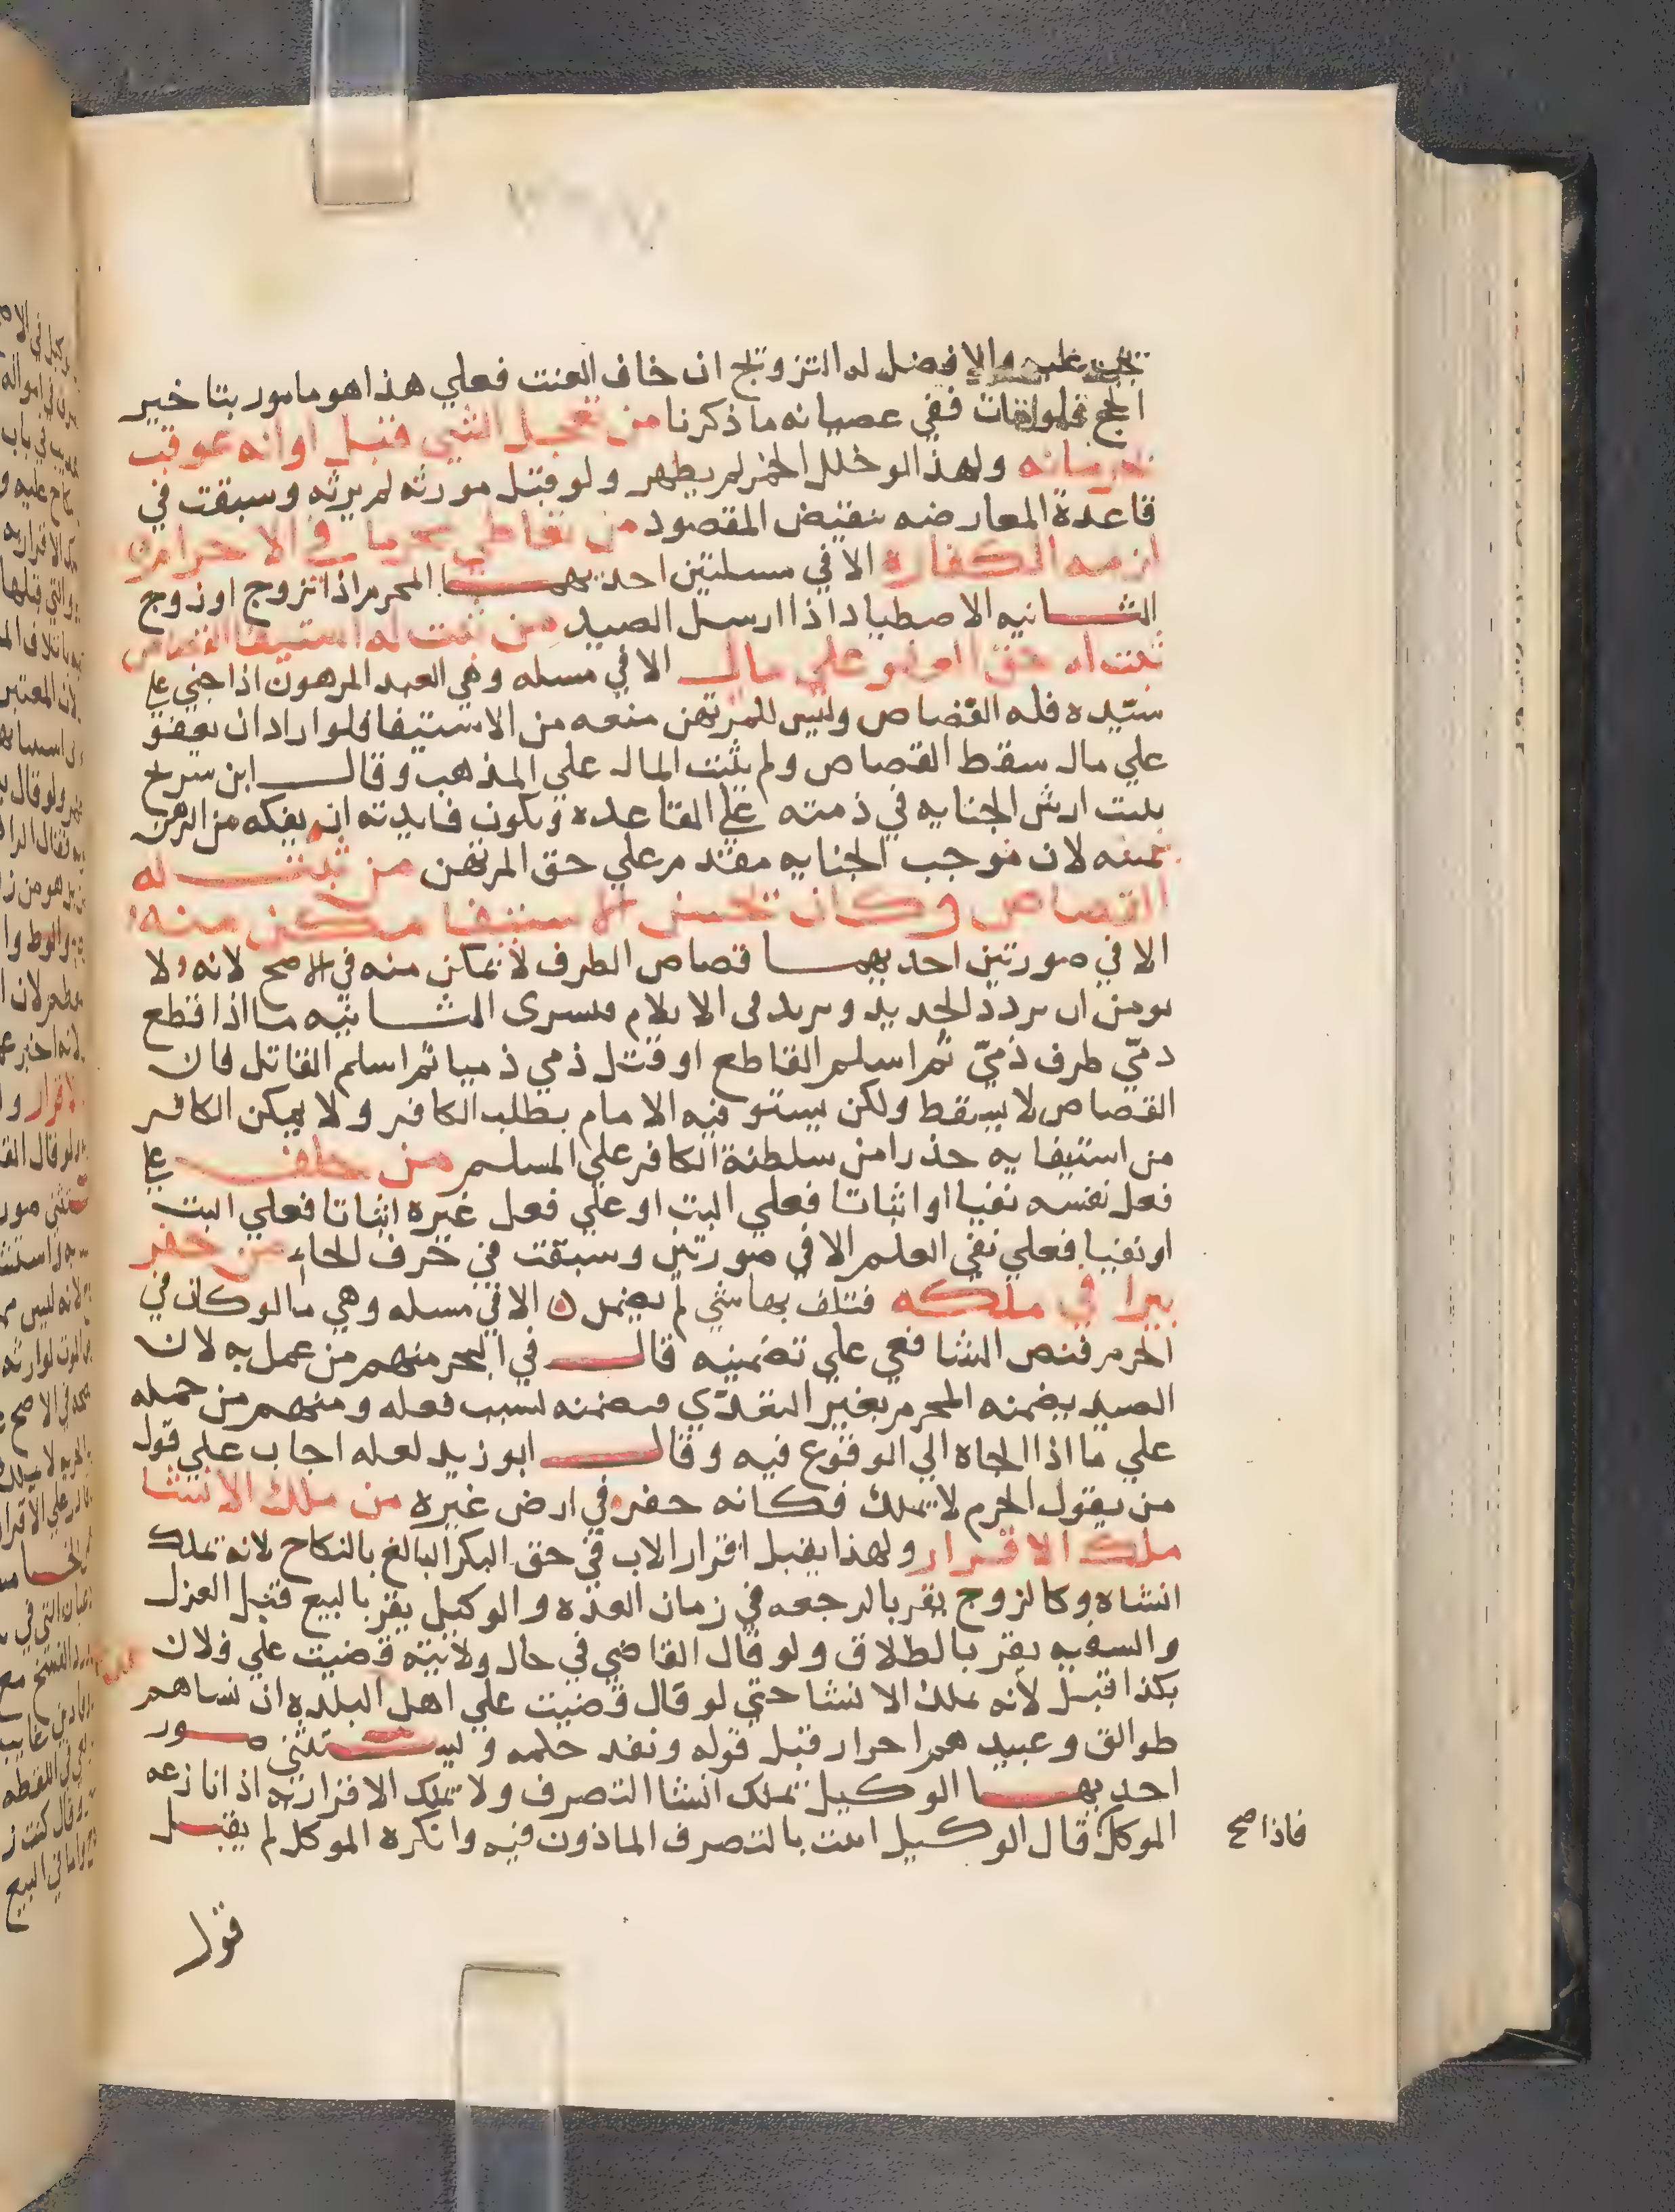 يجب عليه والافضل له التزويج ان خاف العنت فعلي هذا هو مامور بتاخير
الحج فلو مات ففي عصيانه ما ذكرنا من تعجل الشي قبل اوانه عوقب
بحرمانه ولهذا لو خلل الخمر لم يطهر ولو قتل مورثه لم يرثه وسبقت في
قاعدة المعارضه بنقيض المقصود من تعاطي محرما في الاحرام
لزمه الكفارة الا في مسلتين احديهما المحرم اذا تزوج او زوج
الثانيه الاصطياد اذا ارسل الصيد من ثبت له استيفا القصاص
ثبت له حق العفو علي مال الا في مسله وهي العبد المرهون اذا جني علي
سيده فله القصاص وليس للمرتهن منعه من الاستيفا فلو اراد ان يعفو
علي مال سقط القصاص ولم يثبت المال علي المذهب وقال ابن سريج
يثبت ارش الجنايه في ذمته علي القاعده وتكون فايدته ان يفكه من الرهن
بثمنه لان موجب الجنايه مقدم علي حق المرتهن من ثبت له
القصاص وكان يحسن الاستيفا مكن منه
الا في صورتين احديهما قصاص الطرف لا يمكن منه في الاصح لانه لا
يومن ان يردد الحديد ويزيد في الايلام فيسرى الثانيه ما اذا قطع
ذميّ طرف ذميّ ثم اسلم القاطع او قتل ذمي ذميا ثم اسلم القاتل فان
القصاص لا يسقط ولكن يستوفيه الامام بطلب الكافر ولا يمكن الكافر
من استيفايه حذرا من سلطنة الكافر علي المسلم من حلف علي
فعل نفسه نفيا او اثباتا فعلي البت او علي فعل غيره اثباتا فعلي البت
او نفيا فعلي نفي العلم الا في صورتين وسبقت في حرف الحاء من حفر
بيرا في ملكه فتلف بها شي لم يضمن الا في مسله وهي ما لو كان في
الحرم فنص الشافعي علي تضمينه قال في البحر منهم من عمل به لان
الصيد يضمنه المحرم بغير التعدّي فيضمنه لسبب فعله ومنهم من حمله
علي ما اذا الجاه الي الوقوع فيه وقال ابو زيد لعله اجاب علي قول
من يقول الحرم لا يملك فكانه حفر في ارض غيره من ملك الانشا
ملك الاقرار ولهذا يقبل اقرار الاب في حق البكر البالغ بالنكاح لانه يملك
انشاه وكالزوج يقر بالرجعه في زمان العده والوكيل يقر بالبيع قبل العزل
والسفيه يقر بالطلاق ولو قال القاضي في حال ولايته قضيت علي فلان
بكذا قبل لانه يملك الانشا حتي لو قال قضيت علي اهل البلده ان نساهم
طوالق وعبيدهم احرار قبل قوله ونفذ حكمه ويستثني صور
احديها الوكيل يملك انشا التصرف ولا يملك الاقرار به اذا نازعه
الموكل قال الوكيل اتيت بالتصرف الماذون فيه وانكره الموكل لم يقبل
فاذا صح
قول